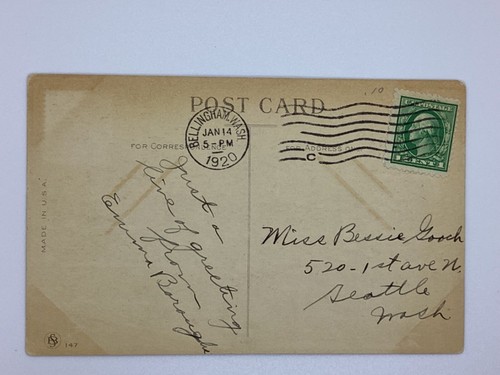 .10
POST CARD
BELLINGHAM, WASH.
JAN 14
5 - PM
1920
C
U.S. POSTAGE
1 CENT 1
FOR CORRESPONDENCE
FOR ADDRESS
Just a
line of greeting
from
Emma Borough
Miss Bessie Gooch
520-1st ave N.
Seattle
Wash
MADE IN U.S.A.
147